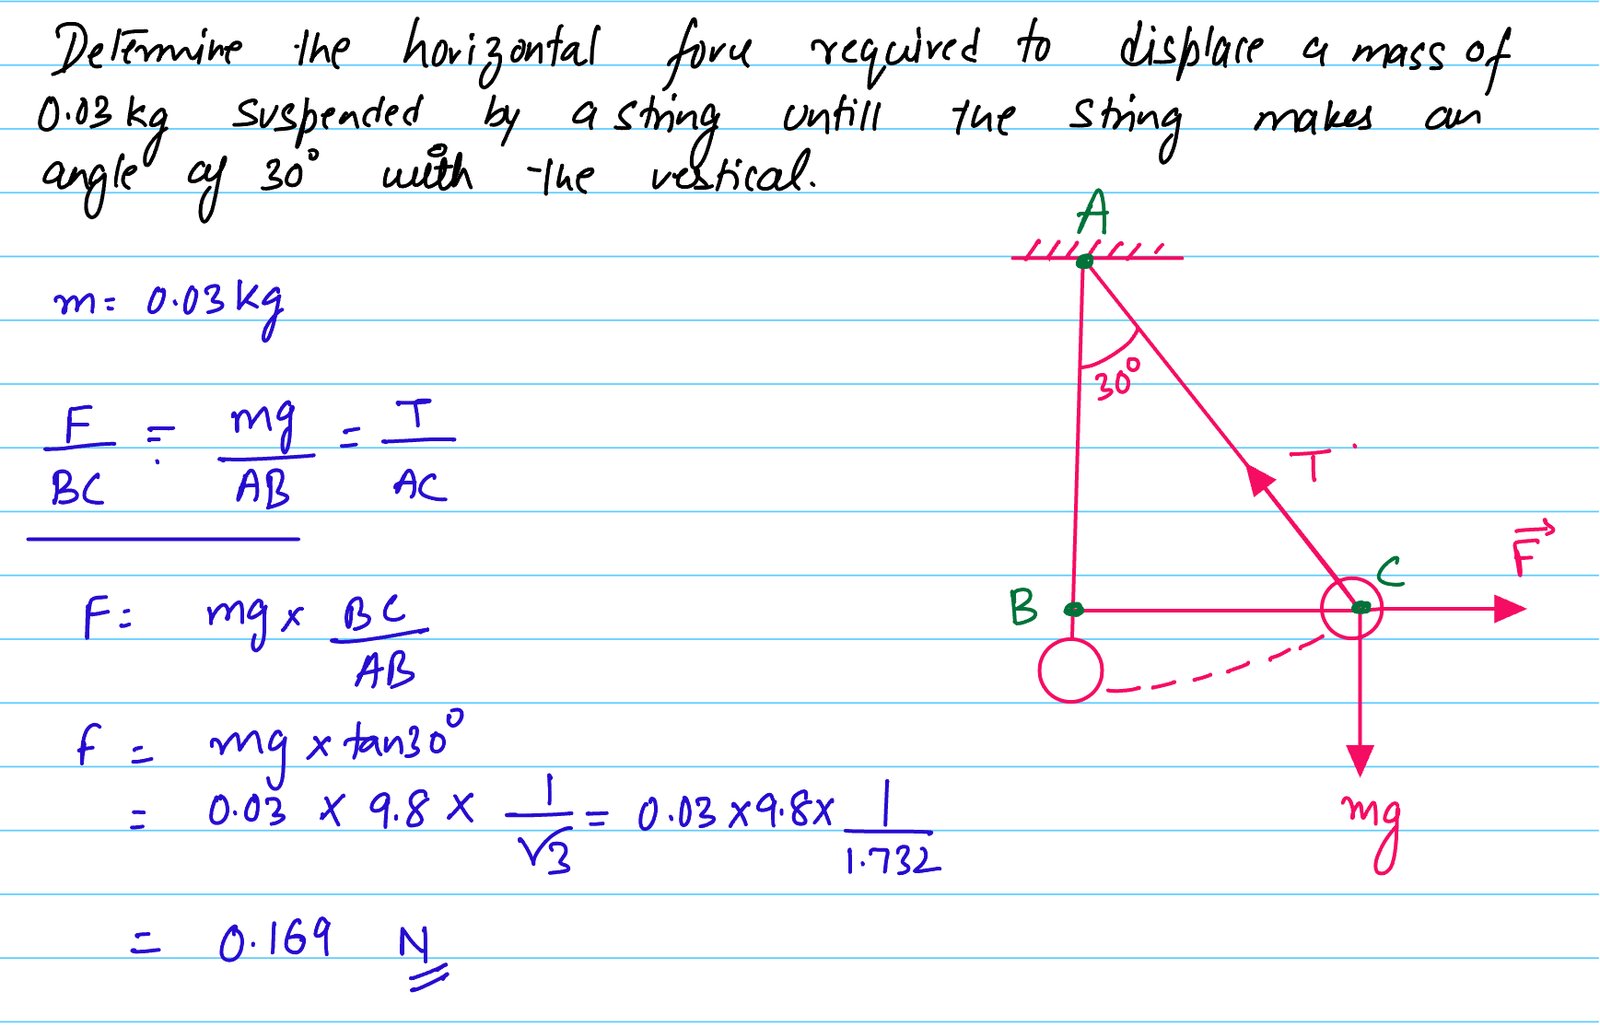 Determine the horizontal force required to displace a mass of
0.03 kg suspended by a string untill the string makes an
angle of 30° with the vertical.
m = 0.03 kg
F/BC = mg/AB = T/AC
F = mg x BC/AB
f = mg x tan30°
= 0.03 x 9.8 x 1/√3 = 0.03 x 9.8 x 1/1.732
= 0.169 N
A
30°
T
F⃗
B
C
mg